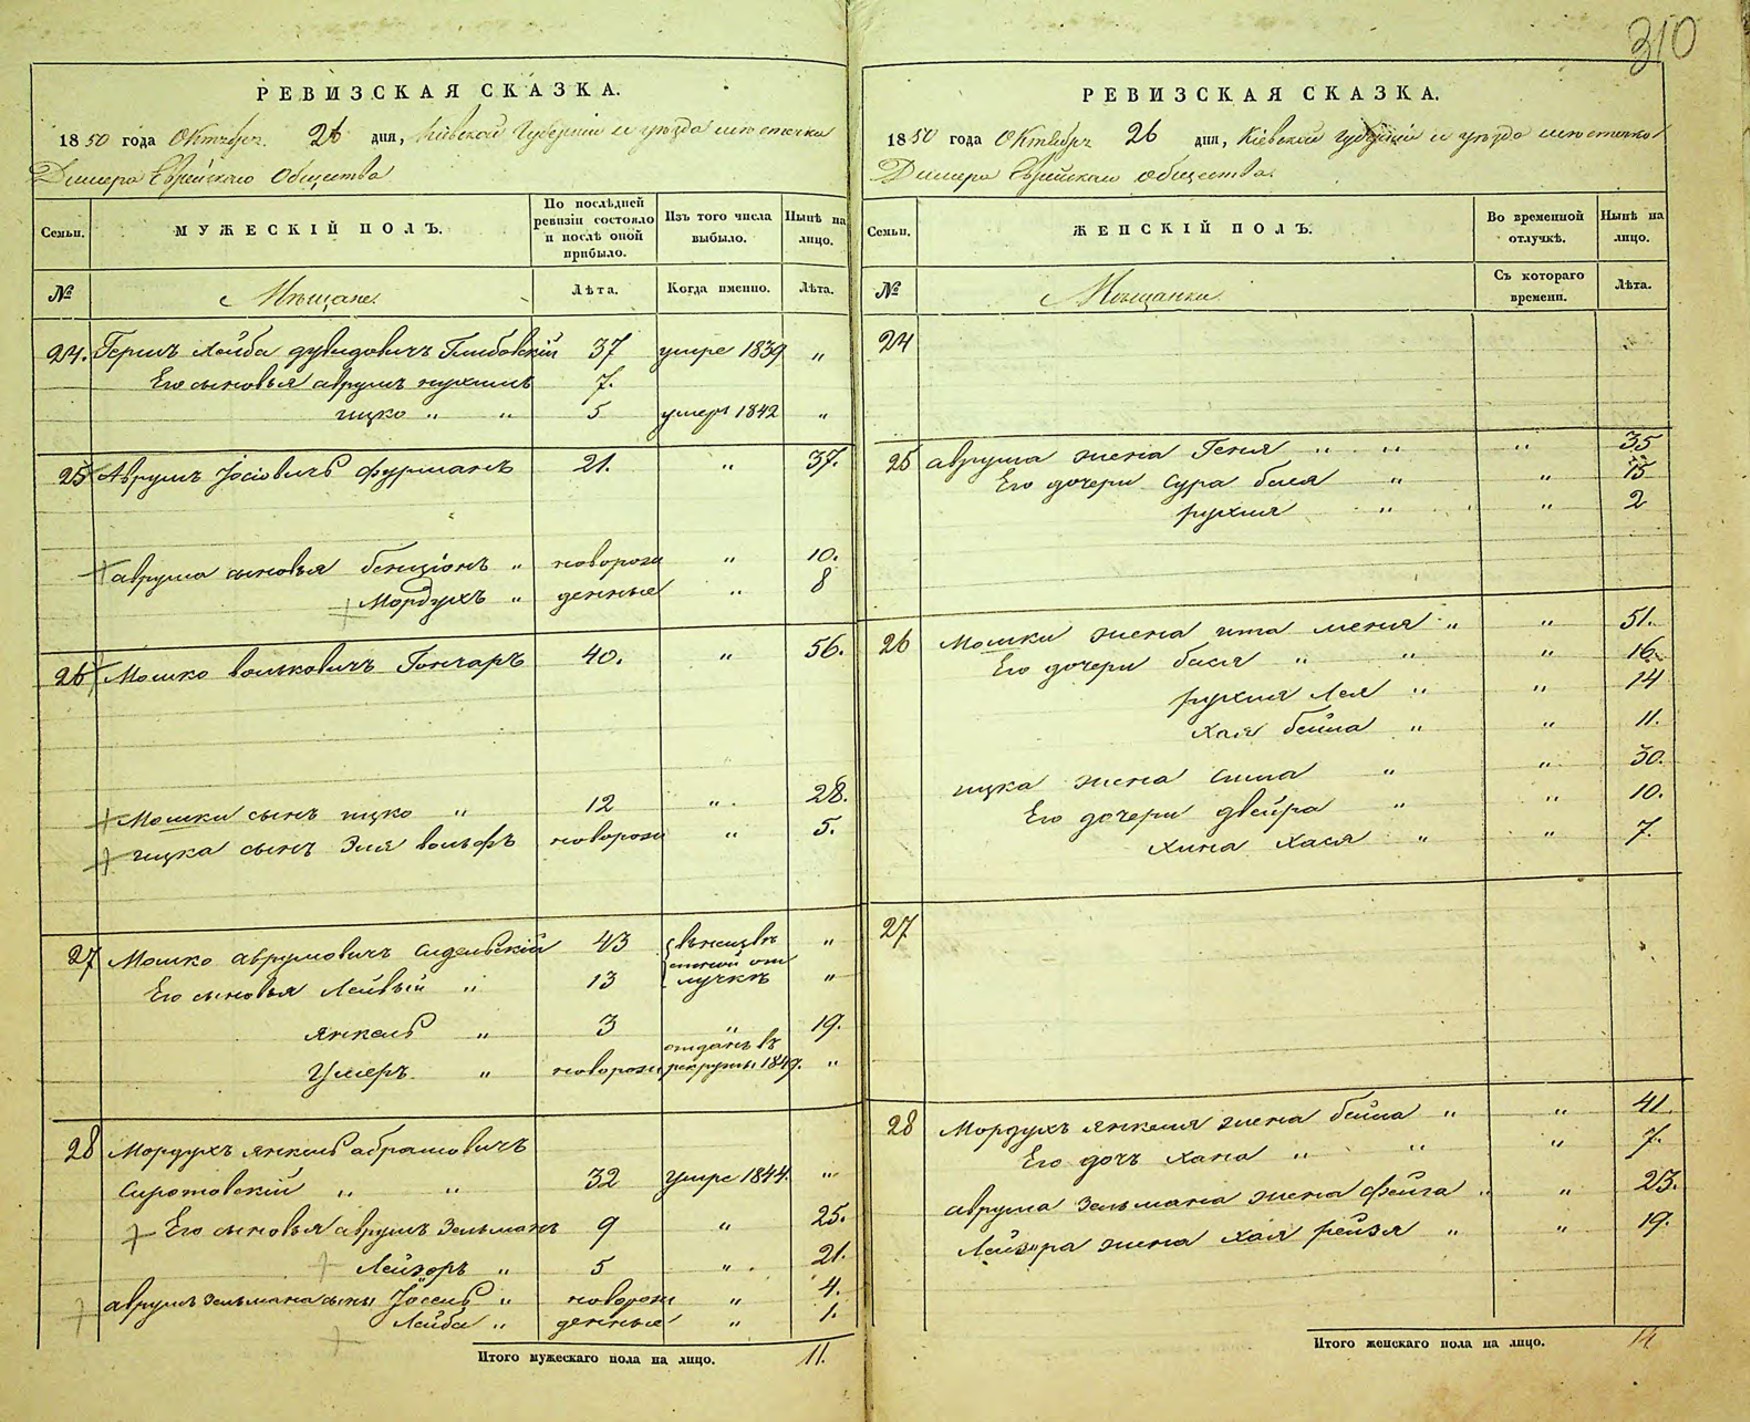 310
РЕВИЗСКАЯ СКАЗКА.
1850 года Октября 26 дня, Кіевской Губерніи и уѣзда мѣстечка
Димера Еврейскаго Общества
Семьи.
МУЖЕСКІЙ ПОЛЪ.
По послѣдней ревизіи состояло и послѣ оной прибыло.
Изъ того числа выбыло.
Нынѣ на лицо.
№
Мѣщане.
Лѣта.
Когда именно.
Лѣта.
24. Гершъ Лейба дувидовичъ Глибовскій 37 умре 1839 "
Его сыновья аврумъ нухимъ 7.
ицко " " 5 умеръ 1842 "
25 Аврумъ Іосіовичъ фурманъ 21. " 37.
аврума сыновья бенціонъ " новорож " 10.
Мордухъ " денные " 8
26 Мошко вольковичъ Гончаръ 40. " 56.
Мошки сынъ ицко " 12 " 28.
ицка сынъ Эля вольфъ новорож " 5.
27 Мошко аврумовичъ Сидельскій 43 въ неизвѣ "
стной от
Его сыновья Лейвый " 13 лучкѣ "
янкель " 3 " 19.
отданъ въ
Умеръ " новорож рекруты 1849. "
28 Мордухъ янкель абрамовичъ
Сиротовскій " " 32 умре 1844. "
Его сыновья аврумъ Зельманъ 9 " 25.
Лейзоръ " 5 " 21.
аврумъ Зельмана сыны Іосель " новорож " 4.
Лейба " денные " 1.
Итого мужескаго пола на лицо. 11.
РЕВИЗСКАЯ СКАЗКА.
1850 года Октября 26 дня, Кіевской Губерніи и уѣзда мѣстечка
Димера Еврейскаго общества.
Семьи.
ЖЕНСКІЙ ПОЛЪ.
Во временной отлучкѣ.
Нынѣ на лицо.
№
Мѣщанки
Съ котораго времени.
Лѣта.
24
25 аврума жена Геня " " " 35
Его дочери Сура бася " " 15
рухля " " 2
26 Мошки жена ита меня " " 51.
Его дочери бася " " " 16.
рухля Лея " " 14
хая бейла " " 11.
ицка жена сима " " 30.
Его дочери двейра " " 10.
хина хася " " 7.
27
28 Мордухъ янкеля жена бейла " " 41.
Его дочъ хана " " " 7.
аврума Зельмана жена фейга " " 23.
Лейзора жена хая рейзя " " 19.
Итого женскаго пола на лицо. 14